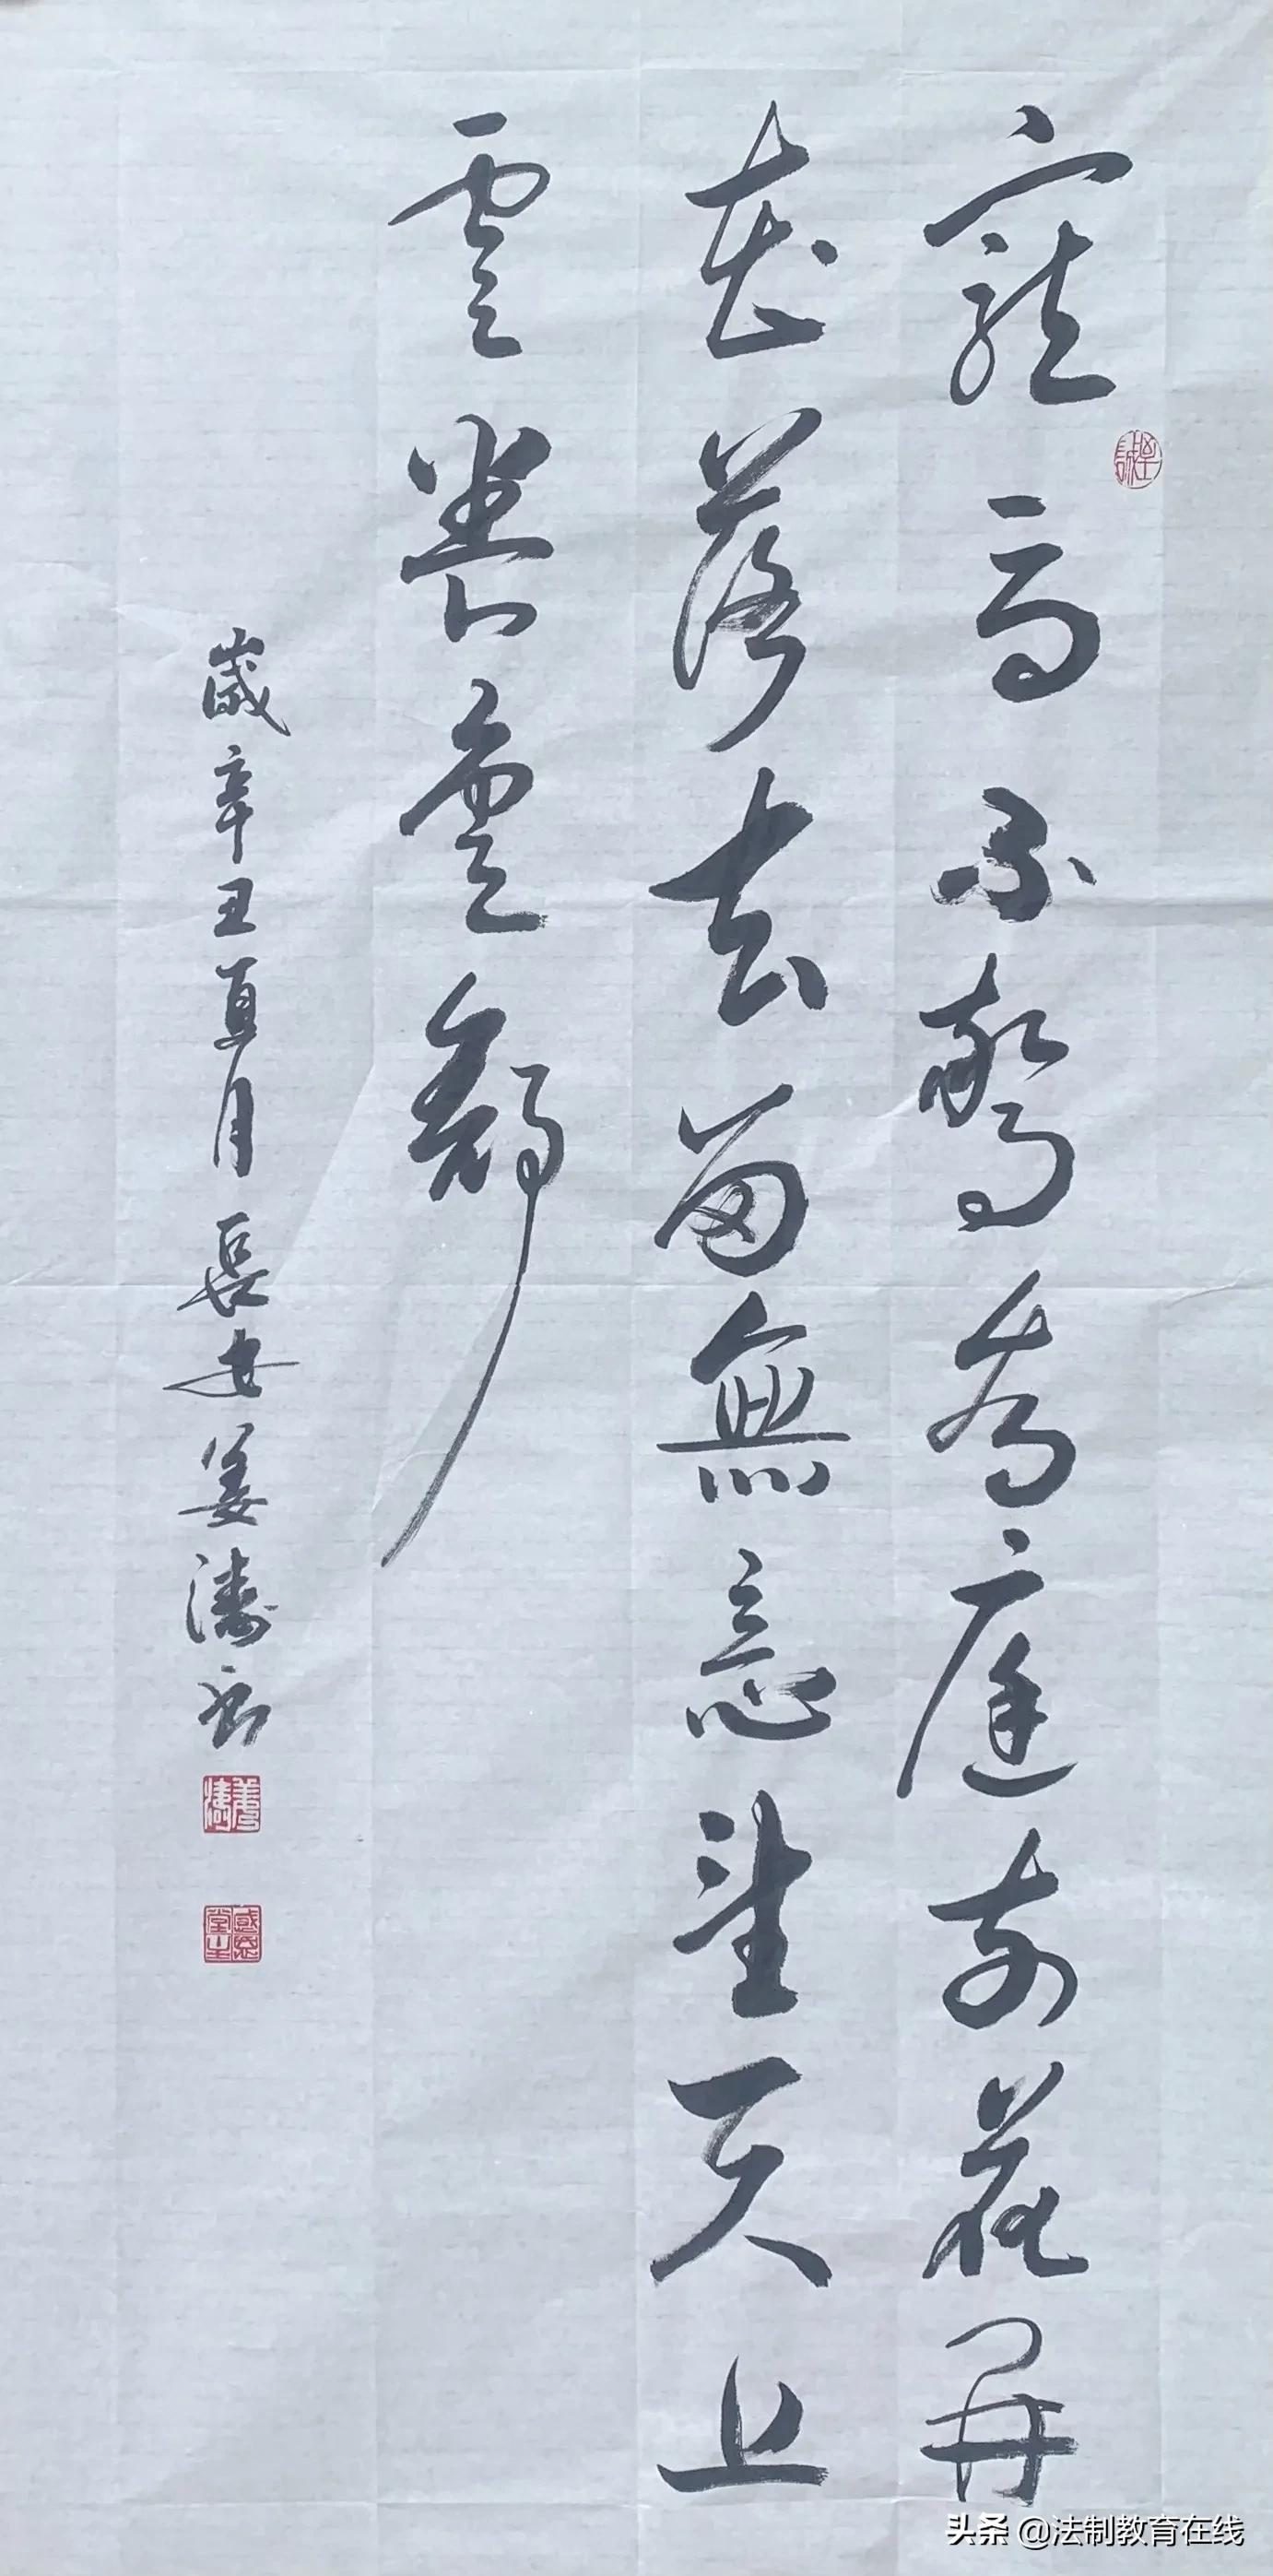 寵辱不驚看庭前花開
花落去留無意望天上
雲卷雲舒
歲辛丑夏月長安姜濤書
感恩堂主
头条 @法制教育在线